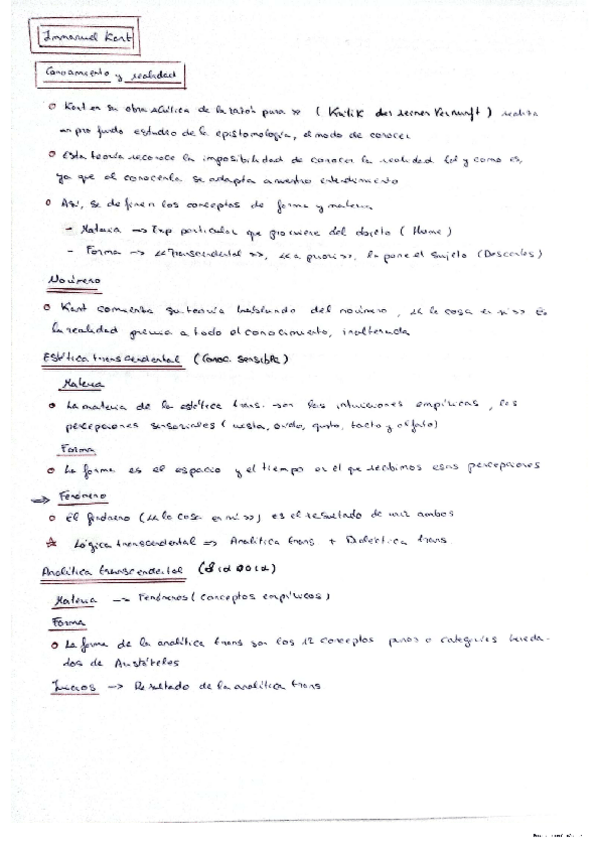 Immanuel Kant
Conocimiento y realidad
Kant en su obra «Crítica de la razón pura» (Kritik der reinen Vernunft) realiza
un profundo estudio de la epistomología, el modo de conocer
Esta teoría reconoce la imposibilidad de conocer la realidad tal y como es,
ya que al conocerla se adapta a nuestro entendimiento
Así, se definen los conceptos de forma y materia
- Materia -> Exp particular que proviene del objeto (Hume)
- Forma -> «Transcendental», «a priori», la pone el sujeto (Descartes)
Noúmeno
Kant comienza su teoría hablando del noúmeno, «la cosa en sí» Es
la realidad previa a todo el conocimiento, inalterada
Estética transcendental (Conoc. sensible)
Materia
La materia de la estética trans. son las intuiciones empíricas, las
percepciones sensoriales (vista, oído, gusto, tacto y olfato)
Forma
La forma es el espacio y el tiempo en el que recibimos esas percepciones
=> Fenómeno
El fenómeno («la cosa en mí») es el resultado de unir ambos
Lógica transcendental => Analítica trans. + Dialéctica trans.
Analítica transcendental
Materia -> Fenómenos (conceptos empíricos)
Forma
La forma de la analítica trans son los 12 conceptos puros o categorías hereda-
dos de Aristóteles
Juicios -> Resultado de la analítica trans